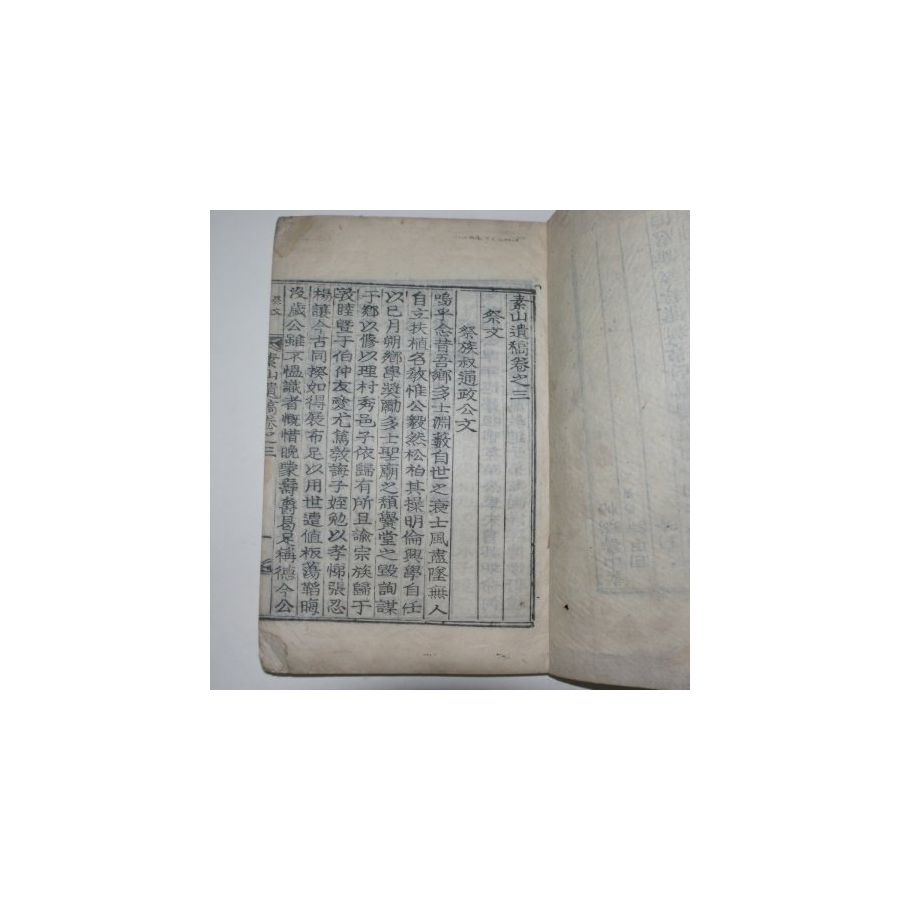 素山遺稿卷之三
祭文
祭族叔通政公文
嗚乎念昔吾鄕多士淵藪自世之衰士風盡墜無人
自立扶植名敎惟公毅然松柏其操明倫興學自任
以已月朔鄕學奬勵多士聖廟之頹黌堂之毁詢謀
于鄕以修以理村秀邑子依歸有所且諭宗族歸于
敦睦曁于伯仲友愛尤篤敎誨子姪勉以孝悌張忍
楊讓今古同揆如得展布足以用世遭値板蕩韜晦
沒歲公雖不慍識者慨惜晩蒙壽爵曷足稱德今公
祭文
素山遺稿卷之三
一